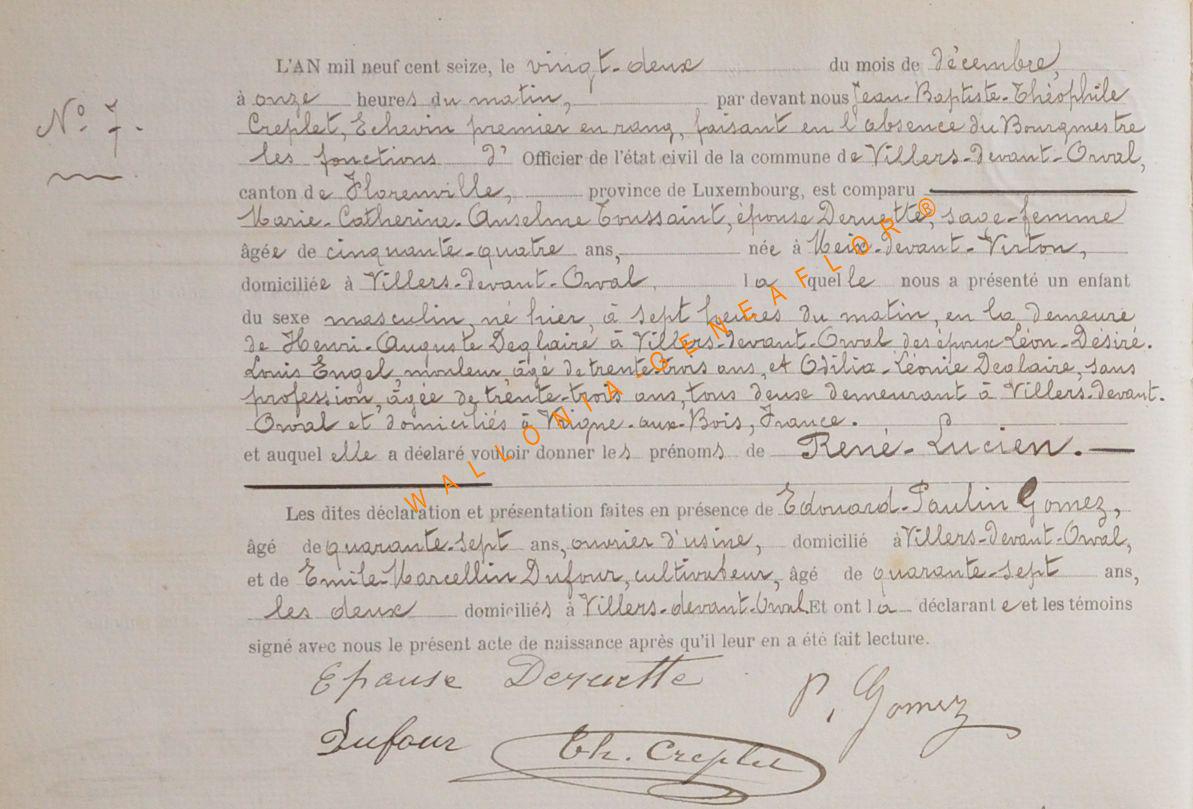 L'AN mil neuf cent seize, le vingt-deux du mois de décembre,
N° 7. à onze heures du matin, par devant nous Jean-Baptiste-Théophile
Creplet, Echevin premier en rang, faisant en l'absence du Bourgmestre
les fonctions d' Officier de l'état civil de la commune de Villers-devant-Orval,
canton de Florenville, province de Luxembourg, est comparu
Marie-Catherine-Anselme Toussaint, épouse Deruette, sage-femme
âgée de cinquante-quatre ans, née à Meix-devant-Virton,
domiciliée à Villers-devant-Orval, laquelle nous a présenté un enfant
du sexe masculin, né hier, à sept heures du matin, en la demeure
de Henri-Auguste Deglaire à Villers-devant-Orval des époux Léon-Désiré-
Louis Engel, mouleur, âgé de trente-trois ans, et Odilia-Léonie Deglaire, sans
profession, âgée de trente-trois ans, tous deux demeurant à Villers-devant-
Orval et domiciliés à Vrigne-aux-Bois, France.
et auquel elle a déclaré vouloir donner les prénoms de René-Lucien.
Les dites déclaration et présentation faites en présence de Edouard-Paulin Gomez,
âgé de quarante-sept ans, ouvrier d'usine, domicilié à Villers-devant-Orval,
et de Emile-Marcellin Dufour, cultivateur, âgé de quarante-sept ans,
les deux domiciliés à Villers-devant-Orval Et ont la déclarante et les témoins
signé avec nous le présent acte de naissance après qu'il leur en a été fait lecture.
Epouse Deruette P. Gomez
Dufour Th. Creplet
WALLONIA-GENEAFLOR®